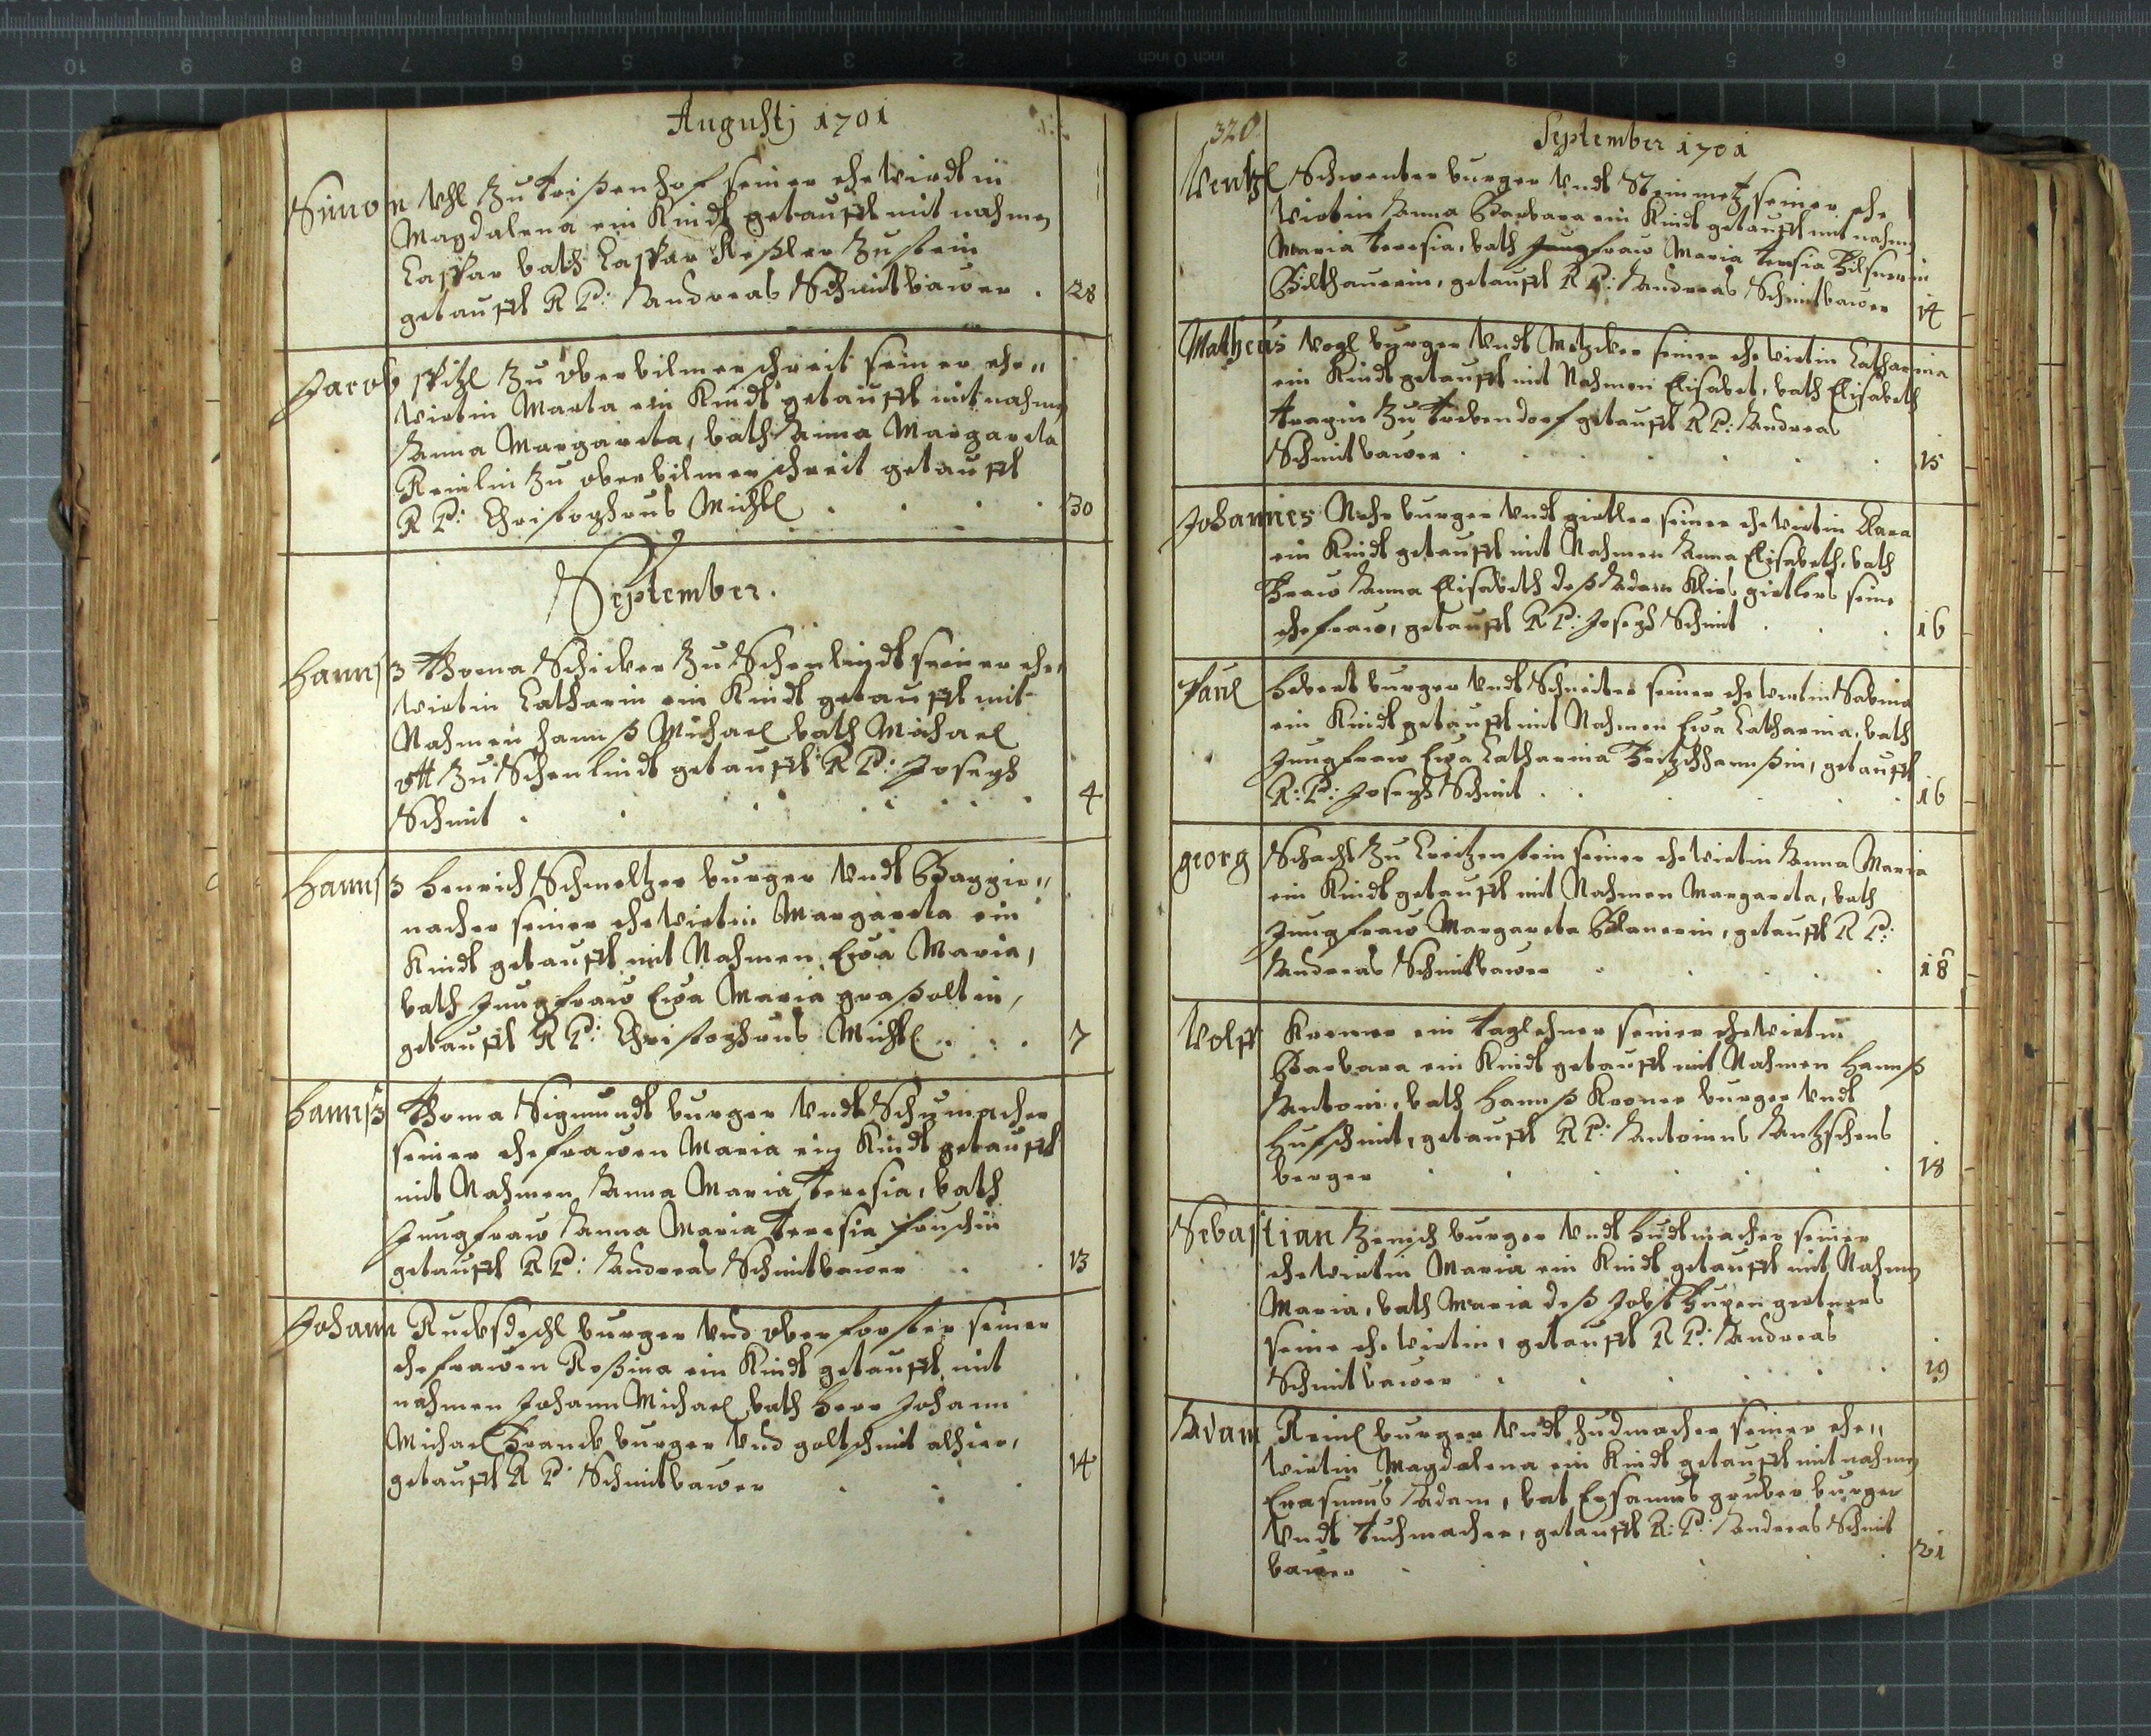 Augustj 1701
Simon Uhl zu Trißenhof seiner ehewirdtin
Magdalena ein Kindt getaufft mit nahmen
Caspar bath Caspar Keßler zu stein
getaufft R P: Andreas Schmitbawer . 28
Jacob spitzl zu oberbilmerschreit seiner ehe„
wirtin Marta ein Kindt getaufft mit nahmen
Anna Margareta, bath Anna Margareta
Reinlin zu oberbilmerschreit getaufft
R P: Christophrus Michl . . . . 30
September.
Hannß Thoma Schicker zu Schenlindt seiner ehe„
wirtin Catharin ein Kindt getaufft mit
Nahmen hannß Michael bath Michael
ott zu Schenlindt getaufft R P: Joseph
Schmit . . . . . . . 4
Hannß Henrich Schmeltzer burger undt Bappir„
macher seiner ehewirtin Margareta ein
Kindt getaufft mit Nahmen Eva Maria,
bath Jungfraw Eva Maria graßoltin,
getaufft R P: Christophrus Michl . . . 7
Hannß Thoma Sigmundt burger undt Schumacher
seiner ehefrawen Maria ein Kindt getaufft
mit Nahmen Anna Maria Teresia, bath
Jungfraw Anna Maria Teresia
getaufft R P: Andreas Schmitbawer . . 13
Johann Ruckdeschl burger und oberforster seiner
ehefrawen Roßina ein Kindt getaufft mit
nahmen Johann Michael bath Herr Johann
Michael Franck burger und goltschmit alhier,
getaufft R P: Schmitbawer . . . 14
320 September 1701
Wentzl Schwenter burger undt Steinmetz seiner ehe
wirtin Anna Barbara ein Kindt getaufft mit nahmen
Maria Teresia, bath Jungfraw Maria Teresia
Bilthauerin, getaufft R P: Andreas Schmitbawer 14
Matheus Vogl burger undt Metzker seiner ehewirtin Catharina
ein Kindt getaufft mit Nahmen Elisabet, bath Elisabeth
Tragin zu Trebendorf getaufft R P: Andreas
Schmitbawer . . . . . . 15
Johannes burger undt girtler seiner ehewirtin Clara
ein Kindt getaufft mit Nahmen Anna Elisabeth, bath
Fraw Anna Elisabeth deß Adam girtlers seine
ehefraw, getaufft R P: Joseph Schmit . . . 16
Paul Hebert burger undt Schneiter seiner ehewirtin Sabina
ein Kindt getaufft mit Nahmen Eva Catharina, bath
Jungfraw Eva Catharina getaufft
R: P: Joseph Schmit . . . . . 16
georg Schacht zu Creitzenstein seiner ehewirtin Anna Maria
ein Kindt getaufft mit Nahmen Margareta, bath
Jungfraw Margareta Blanerin, getaufft R P:
Andreas Schmitbawer . . . . . 18
Wolff Kromer ein Taglehner seiner ehewirtin
Barbara ein Kindt getaufft mit Nahmen Hannß
Antoni, bath Hannß Kroner burger undt
hufschmit, getaufft R P: Antonius
berger . . . . . . . 18
Sebastian burger undt hudtmacher seiner
ehewirtin Maria ein Kindt getaufft mit Nahmen
Maria, bath Maria deß Jobst
seine ehewirtin, getaufft R P: Andreas
Schmitbawer . . . . . . 19
Adam Reinl burger undt hudmacher seiner ehe„
wirtin Magdalena ein Kindt getaufft mit nahmen
Erasmus Adam, bat Ersamus gruber burger
undt Tuchmacher, getaufft R: P: Andreas Schmit
bawer . . . . . 21